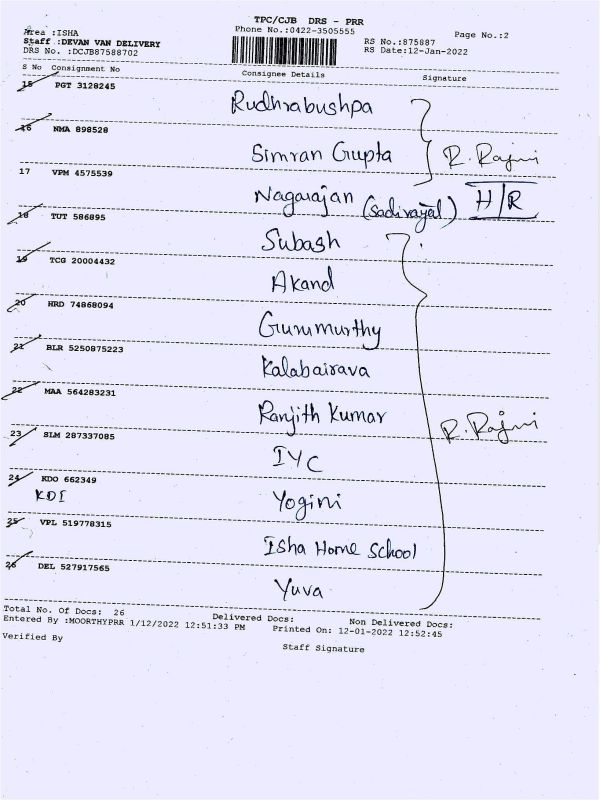 TPC/CJB DRS - PRR
Area :ISHA Phone No.:0422-3505555 Page No.:2
Staff :DEVAN VAN DELIVERY RS No.:875887
DRS No. :DCJB87588702 RS Date:12-Jan-2022
S No Consignment No Consignee Details Signature
15 PGT 3128245 Rudhrabushpa
16 NMA 898528 Simran Gupta R. Rajni
17 VPM 4575539 Nagarajan (Sadivayal) H/R
18 TUT 586895 Subash
19 TCG 20004432 Akand
20 HRD 74868094 Gurumurthy
21 BLR 5250875223 Kalabairava
22 MAA 564283231 Ranjith Kumar R. Rajni
23 SLM 287337085 IYC
24 KDO 662349
KDI Yogini
25 VPL 519778315 Isha Home School
26 DEL 527917565 Yuva
Total No. Of Docs: 26 Delivered Docs: Non Delivered Docs:
Entered By :MOORTHYPRR 1/12/2022 12:51:33 PM Printed On: 12-01-2022 12:52:45
Verified By Staff Signature